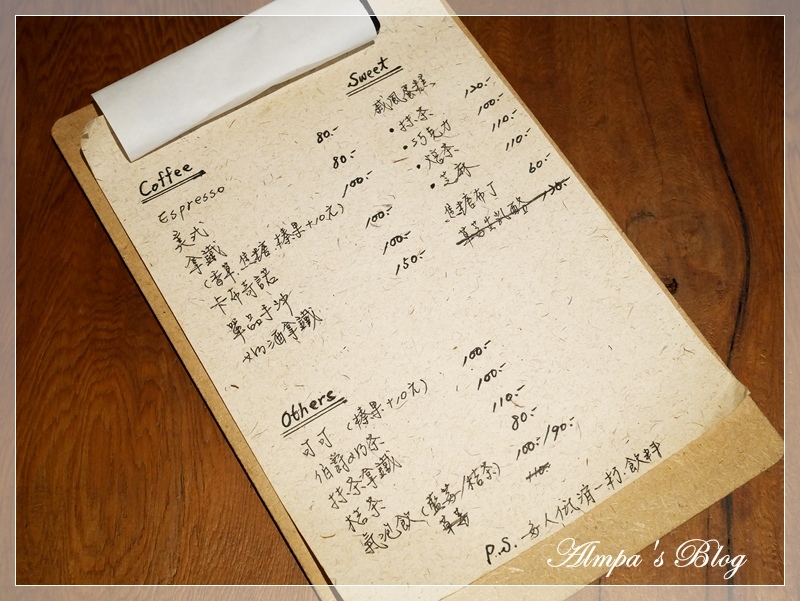 Coffee
Espresso 80.-
美式 80.-
拿鐵 100.-
(香草.焦糖.榛果+10元)
卡布奇諾 100.-
單品手沖 100.-
奶酒拿鐵 150.-
Sweet
戚風蛋糕
• 抹茶 120.-
• 巧克力 100.-
• 焙茶 110.-
• 芝麻 110.-
焦糖布丁 60.-
草莓生乳酪 130.-
Others
可可 (榛果+10元) 100.-
伯爵奶茶 100.-
抹茶拿鐵 110.-
桔茶 80.-
氣泡飲 (藍莓/桔茶) 100.-/90.-
草莓 110.-
P.S. 每人低消一杯飲料
Almpa's Blog